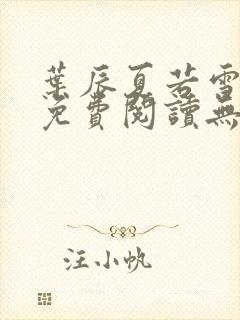 葉辰夏若雪
免費閱讀無
汪小帆